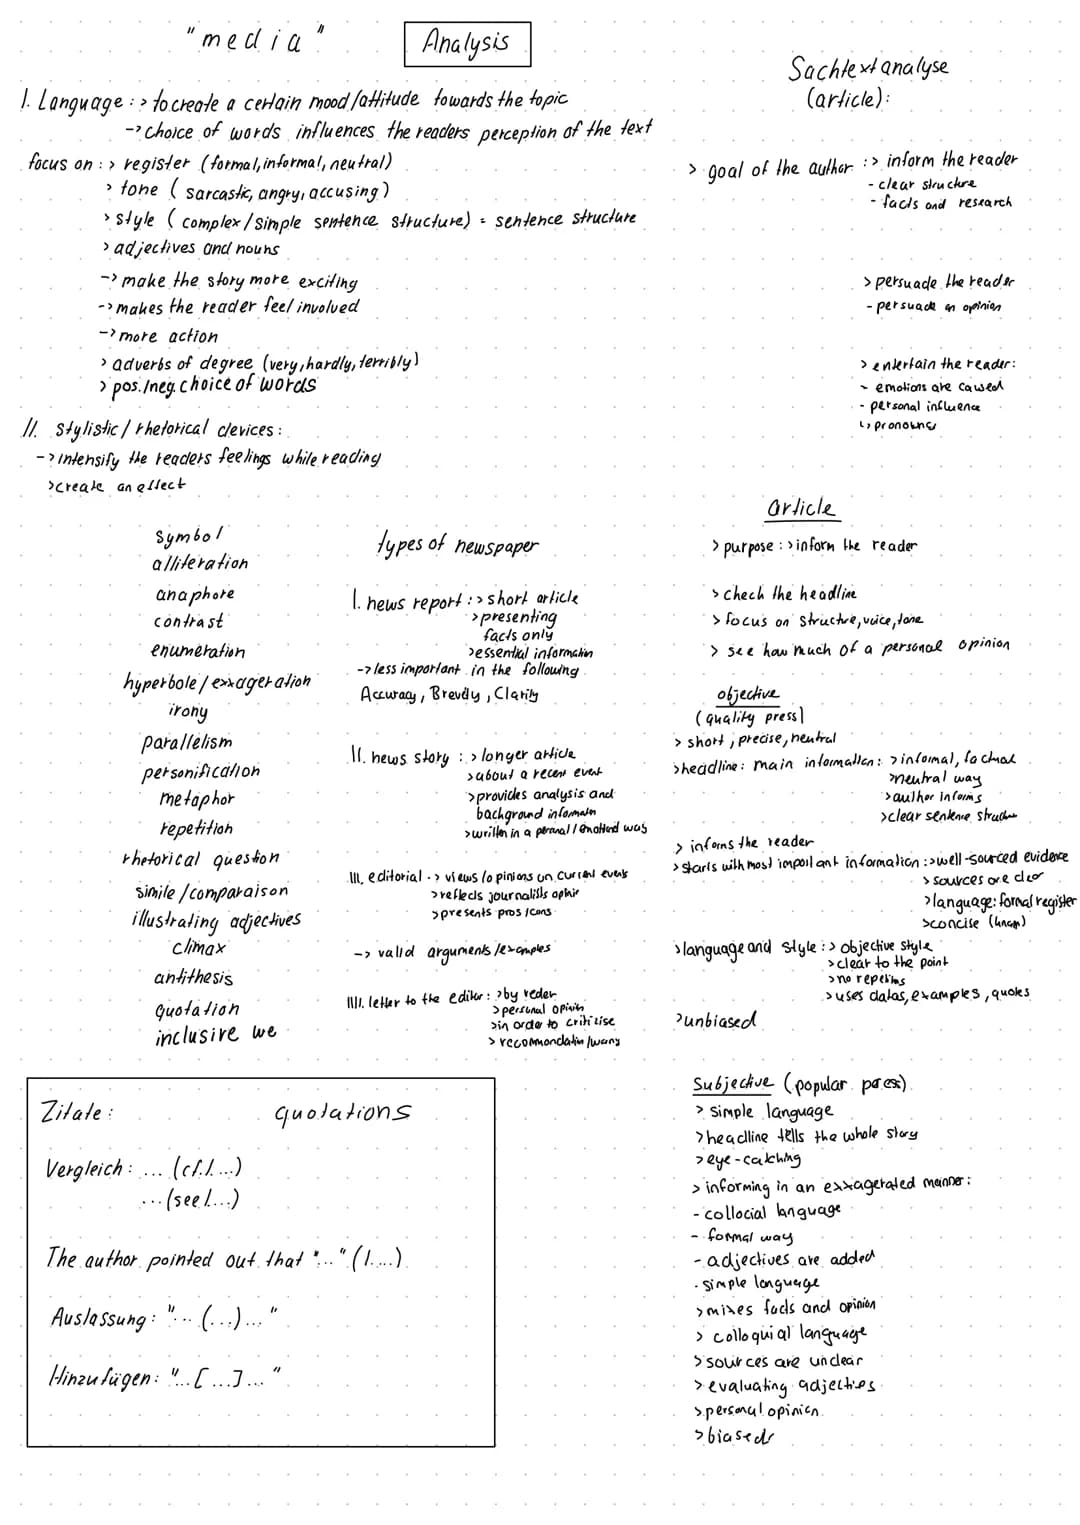 "media"
Analysis
I. Language :> to create a certain mood/attitude towards the topic
-> choice of words influences the readers perception of the text
focus on :> register (formal, informal, neutral)
> tone ( sarcastic, angry, accusing)
> style ( complex/simple sentence structure) = sentence structure
> adjectives and nouns
-> make the story more exciting
-> makes the reader feel involved
-> more action
> adverbs of degree (very, hardly, terribly)
> pos./neg. choice of words
II. stylistic/rhetorical devices:
-> intensify the readers feelings while reading
> create an effect
symbol
alliteration
anaphore
contrast
enumeration
hyperbole/exxageration
irony
parallelism
personification
metaphor
repetition
rhetorical question
simile/comparaison
illustrating adjectives
climax
antithesis
quotation
inclusive we
types of newspaper
I. news report :> short article
> presenting
facts only
> essential information
-> less important in the following
Accuracy, Brevity, Clarity
II. news story :> longer article
> about a recent event
> provides analysis and
background information
> written in a personal / emotional way
III. editorial -> views/opinions on current events
> reflects journalists opinion
> presents pros/cons
-> valid arguments/examples
IIII. letter to the editor: > by reder
> personal opinion
> in order to criticise
> recommondation/warng
Zitate: quotations
Vergleich: ... (cf. l. ...)
... (see l. ...)
The author pointed out that "..." (l. ...)
Auslassung: "... (...) ..."
Hinzufügen: "... [...] ..."
Sachtextanalyse
(article):
> goal of the author :> inform the reader
- clear structure
- facts and research
> persuade the reader
- persuade an opinion
> entertain the reader:
- emotions are caused
- personal influence
↳ pronouns
article
> purpose :> inform the reader
> check the headline
> focus on structure, voice, tone
> see how much of a personal opinion
objective
(quality press)
> short, precise, neutral
> headline: main information: > informal, factual
> neutral way
> author informs
> clear sentence structure
> informs the reader
> starts with most important information :> well-sourced evidence
> sources are clear
> language: formal register
> concise
> language and style :> objective style
> clear to the point
> no repetitions
> uses datas, examples, quotes
> unbiased
Subjective (popular press)
> simple language
> headline tells the whole story
> eye-catching
> informing in an exxagerated manner:
- collocial language
- formal way
- adjectives are added
- simple language
> mixes facts and opinion
> colloquial language
> sources are unclear
> evaluating adjectives
> personal opinion
> biased